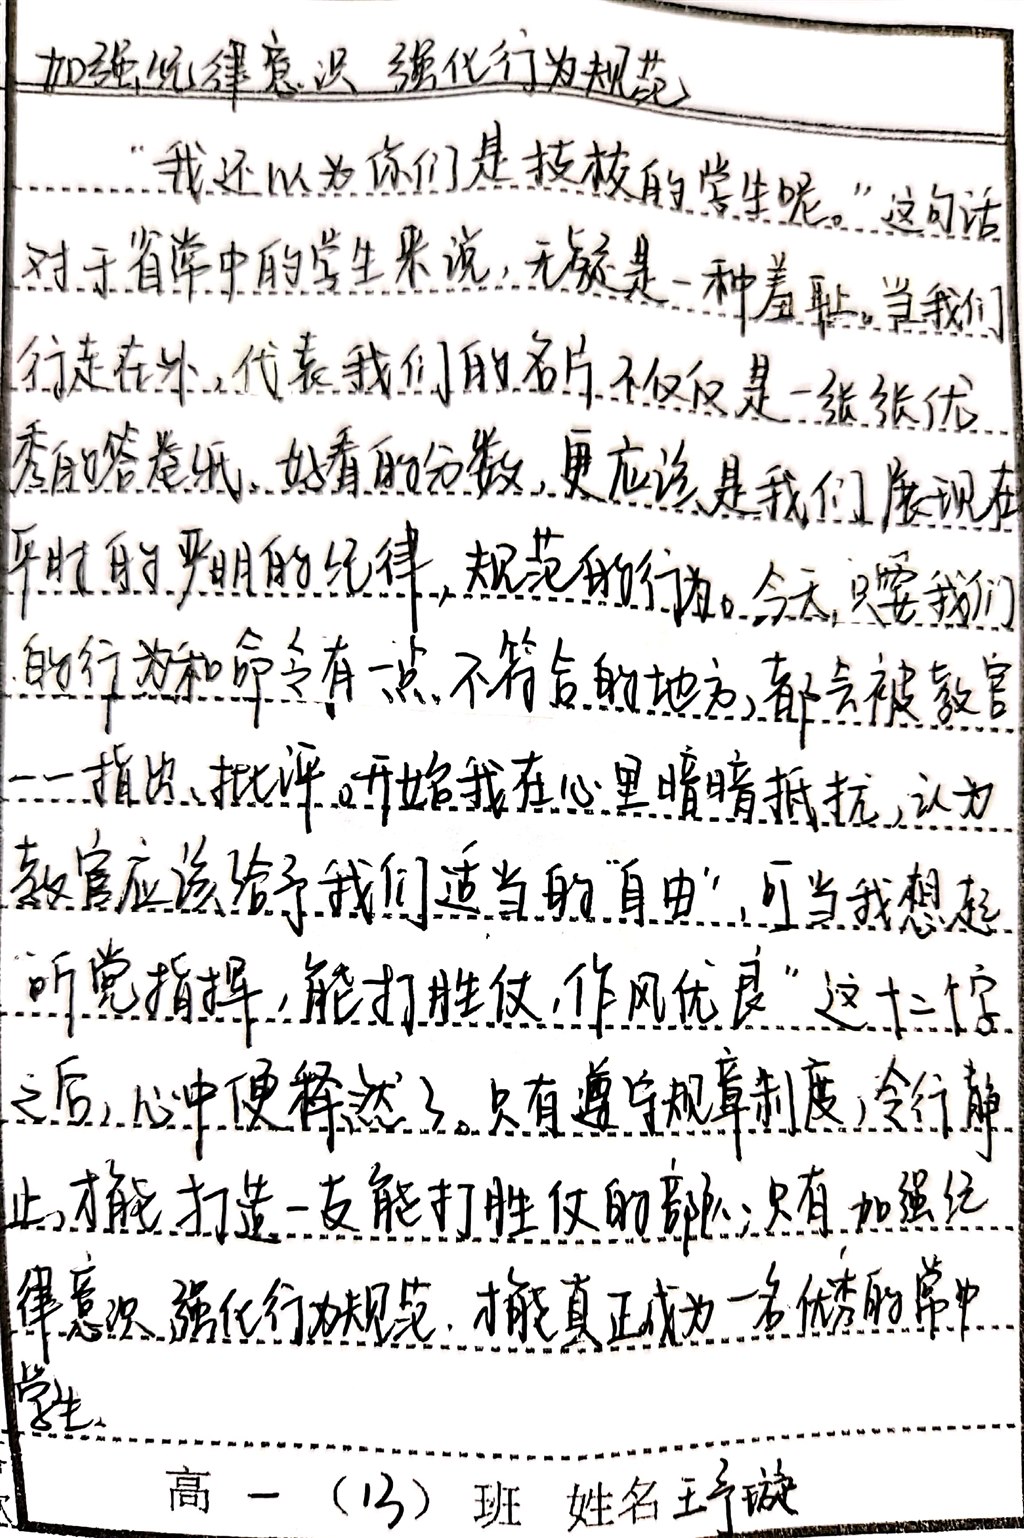 加强纪律意识 强化行为规范
“我还以为你们是技校的学生呢。”这句话
对于省常中的学生来说，无疑是一种羞耻。当我们
行走在外，代表我们的名片不仅仅是一张张优
秀的答卷纸、好看的分数，更应该是我们展现在
平时的严明的纪律，规范的行为。今天，只要我们
的行为和命令有一点不符合的地方，都会被教官
一一指出、批评。开始我在心里暗暗抵抗，认为
教官应该给予我们适当的“自由”，可当我想起
“听党指挥，能打胜仗，作风优良”这十二个字
之后，心中便释然了。只有遵守规章制度，令行静
止，才能打造一支能打胜仗的部队；只有加强纪
律意识 强化行为规范，才能真正成为一名优秀的常中
学生。
高一（13）班 姓名 王予璇